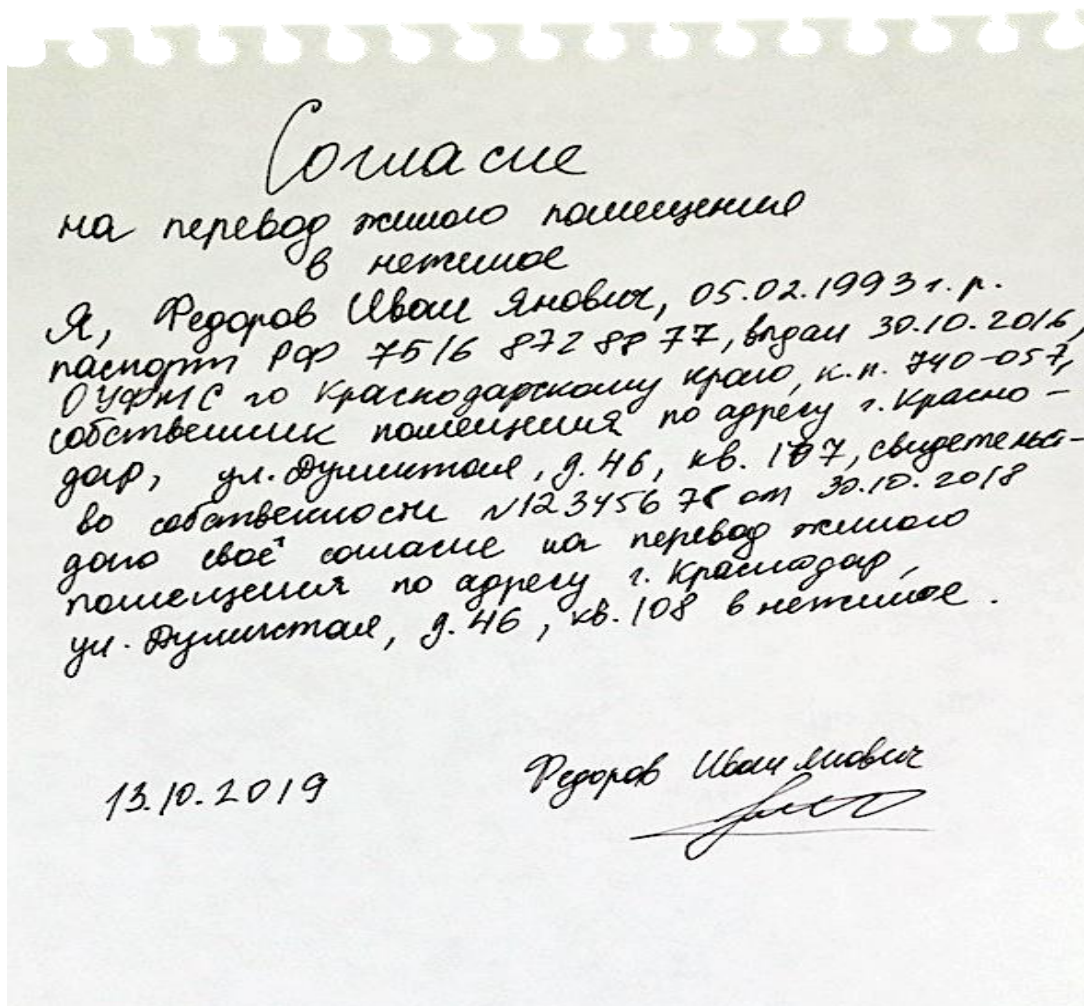 Согласие
на перевод жилого помещение
в нежилое
Я, Федоров Иван Янович, 05.02.1993 г. р.
паспорт РФ 7516 872 88 77, выдан 30.10.2016,
ОУФМС по Краснодарскому краю, к.п. 740-057,
собственник помещения по адресу г. Красно-
дар, ул. Душистая, д. 46, кв. 107, свидетельст-
во собственности №12345678 от 30.10.2018
даю своё согласие на перевод жилого
помещения по адресу г. Краснодар,
ул. Душистая, д. 46, кв. 108 в нежилое.
13.10.2019
Федоров Иван Янович